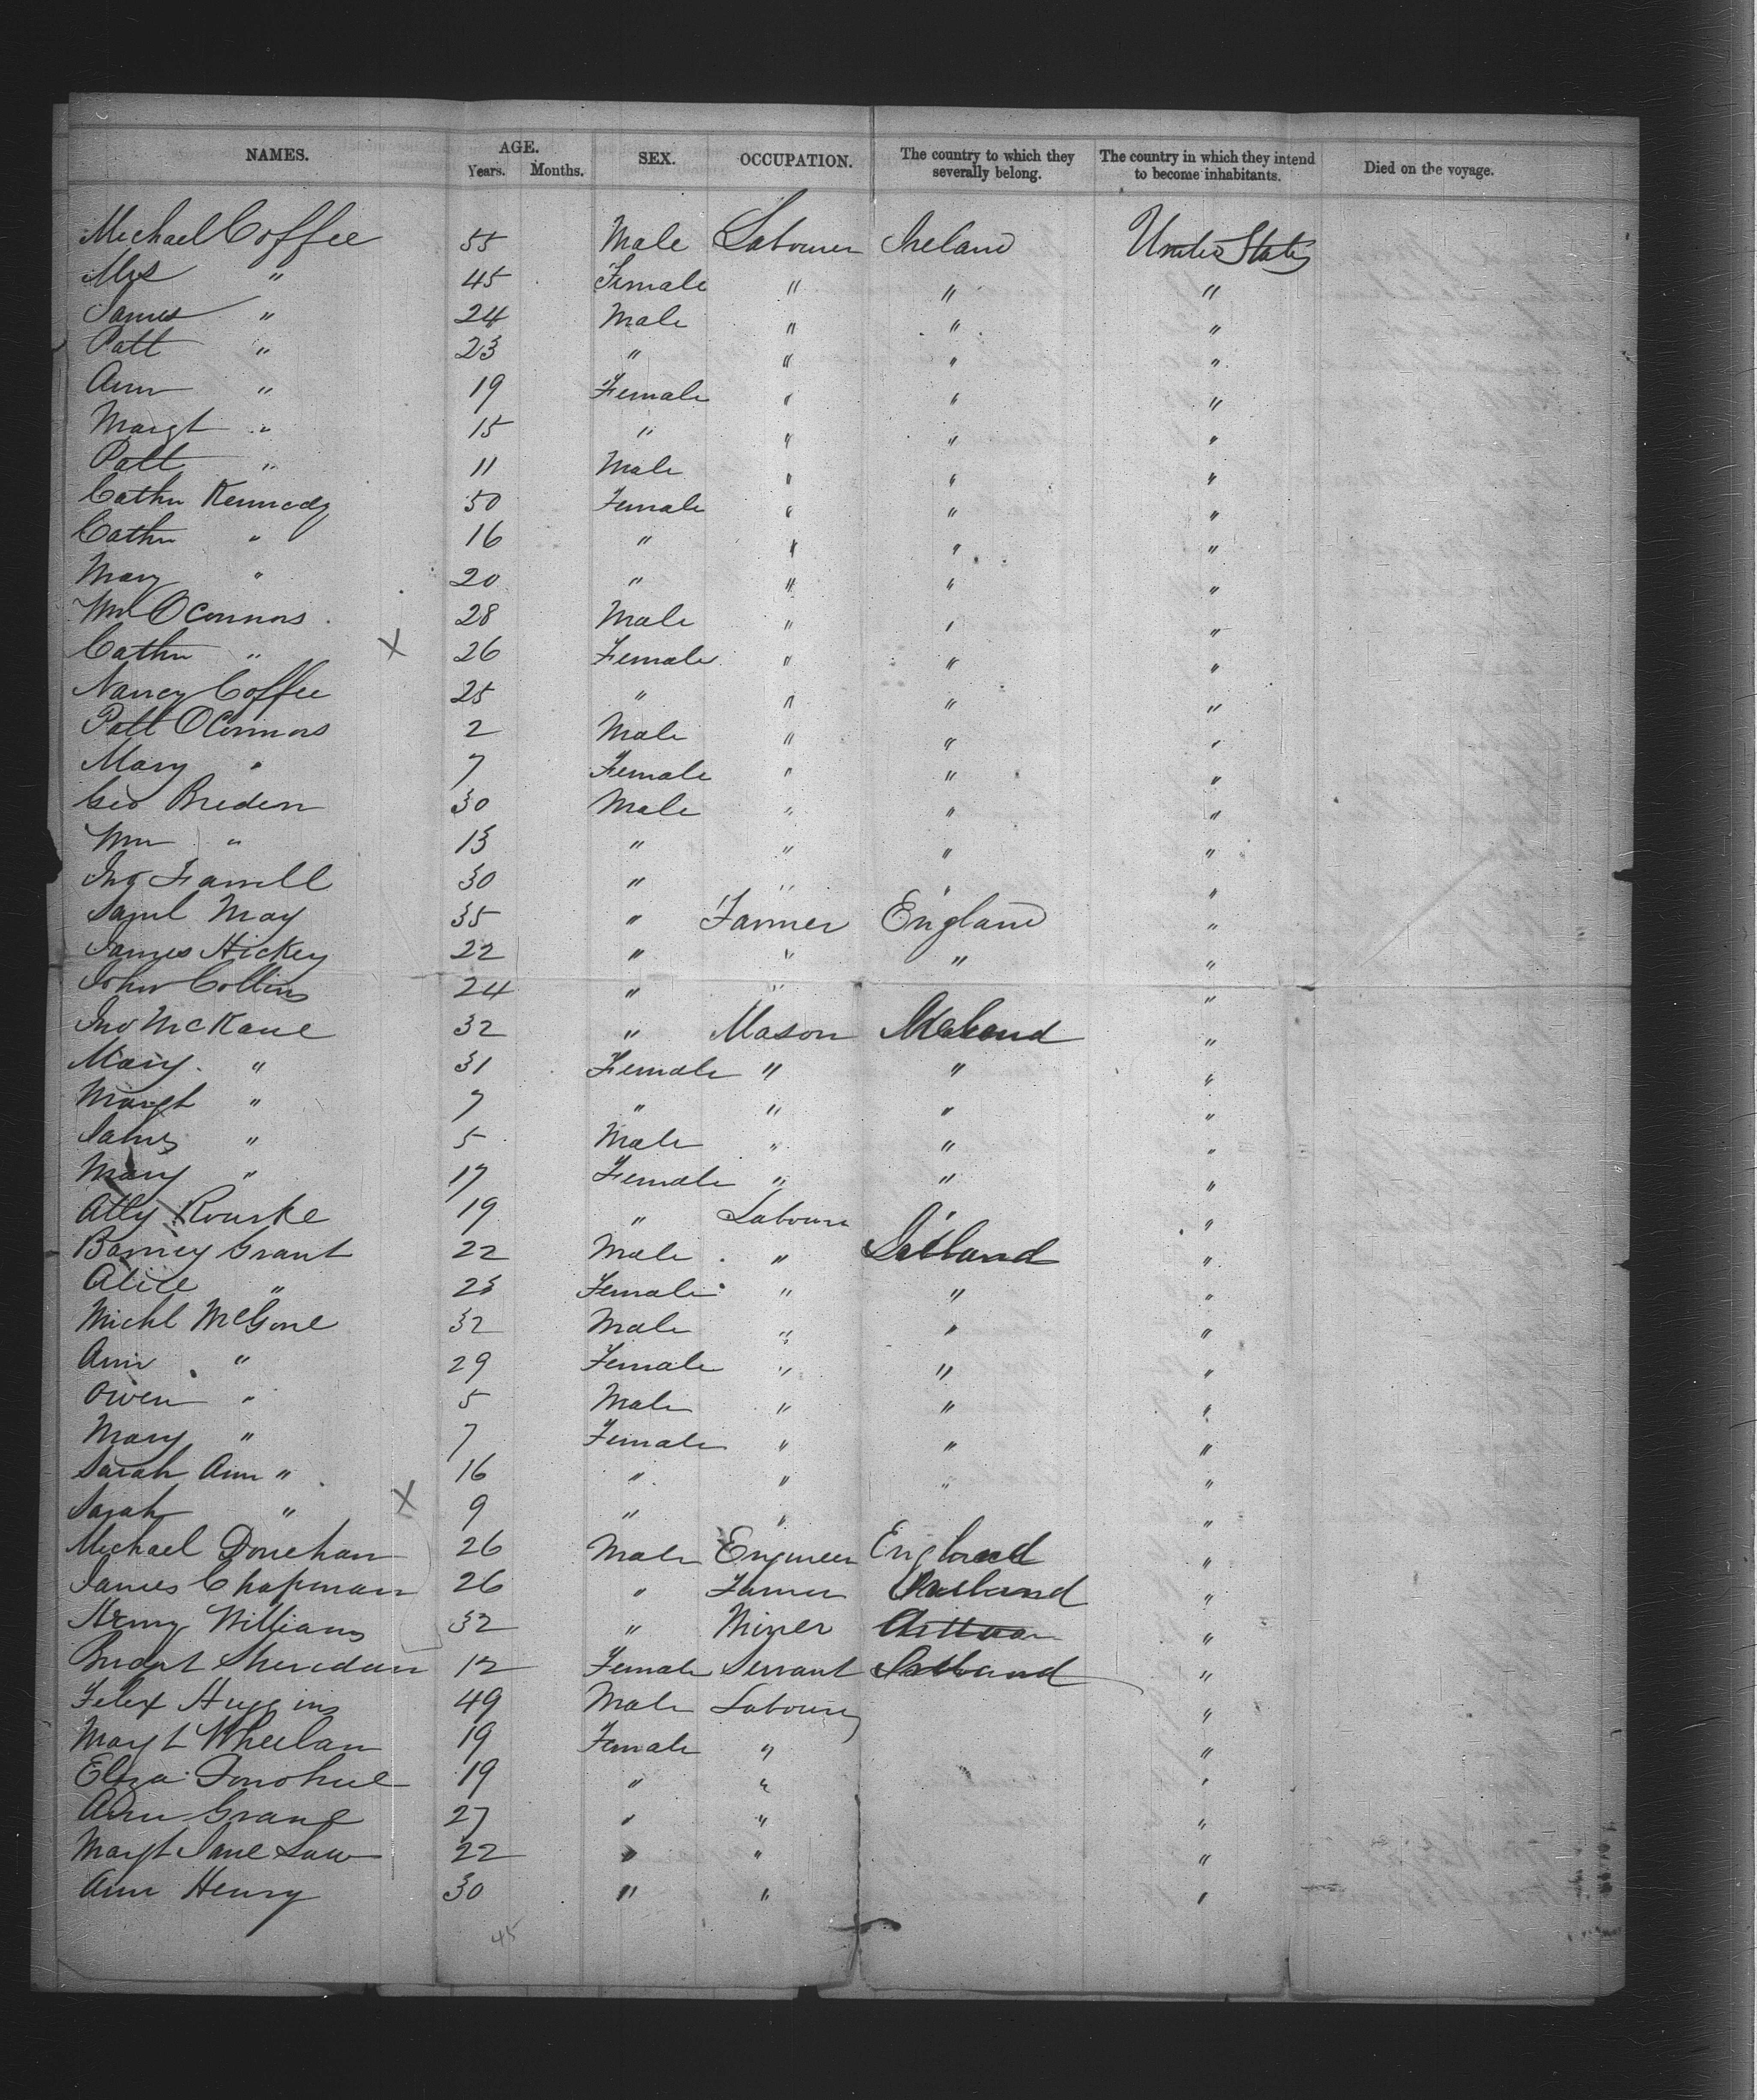 NAMES. AGE. Years. Months. SEX. OCCUPATION. The country to which they severally belong. The country in which they intend to become inhabitants. Died on the voyage.
Michael Coffee 55 Male Labourer Ireland United States
Mrs " 45 Female " " "
James " 24 Male " " "
Patt " 23 " " " "
Ann " 19 Female " " "
Margt " 15 " " " "
Patt " 11 Male " " "
Cathn Kennedy 50 Female " " "
Cathn " 16 " " " "
Mary " 20 " " " "
Wm OConnors 28 Male " " "
Cathn " X 26 Female " " "
Nancy Coffee 25 " " " "
Patt OConnors 2 Male " " "
Mary " 7 Female " " "
Geo Breden 30 Male " " "
Wm " 13 " " " "
Jno Farrell 30 " " " "
Saml May 35 " Farmer England "
James Hickey 22 " " " "
John Collins 24 " " "
Jno McKane 32 " Mason Ireland "
Mary " 31 Female " " "
Margt " 7 " " " "
James " 5 Male " " "
Mary " 17 Female " " "
Atty Rourke 19 " Labourer " "
Barney Grant 22 Male " Ireland "
Alice " 23 Female " " "
Michl 32 Male " " "
Ann " 29 Female " " "
Owen " 5 Male " " "
Mary " 7 Female " " "
Sarah Ann " 16 " " " "
Sarah " X 9 " " "
Michael Donehan 26 Male Engineer England "
James Chapman 26 " Farmer "
Henry Williams 32 " Miner "
Bridgt Sheridan 12 Female Servant Ireland "
Felix Huggins 49 Male Labourer "
Margt Wheelan 19 Female " "
Eliza Donohue 19 " " "
Ann 27 " " "
Margt Jane Law 22 " " "
Ann Henry 30 " " "
45